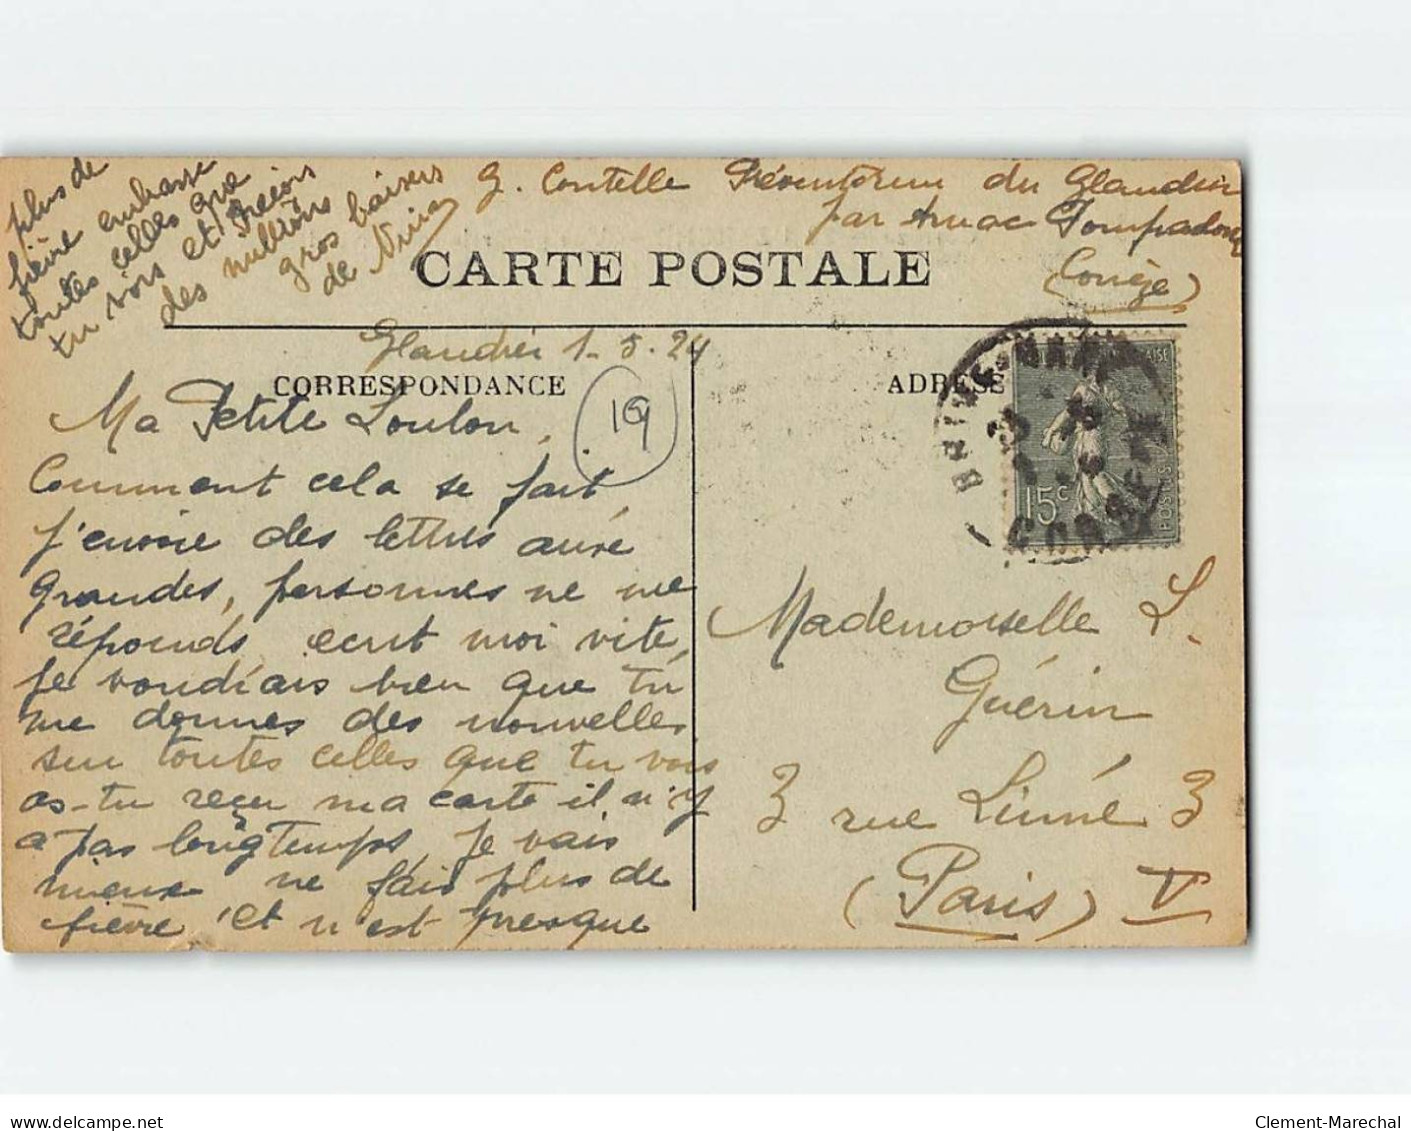 G. Contelle Préventorium du Glandier
par Arnac Pompadour
(Corrèze)
CARTE POSTALE
Glandier 1-5-24
CORRESPONDANCE
ADRESSE
19
Ma Petite Loulou,
Comment cela se fait
j'envoie des lettres
grandes, personnes ne me
réponds ecrit moi vite,
Je voudrais bien que tu
me donnes des nouvelles
sur toutes celles que tu vois
as-tu reçu ma carte il n'y
a pas longtemps, je vais
mieux ne fais plus de
fièvre et n'est presque
plus de
fièvre embrasse
toutes celles que
tu vois et reçois
des millions
gros baisers
de Nini
15c
POSTES
CORREZE
Mademoiselle L.
Guérin
3 rue Linné 3
(Paris) V
delcampe.net
Clement-Marechal